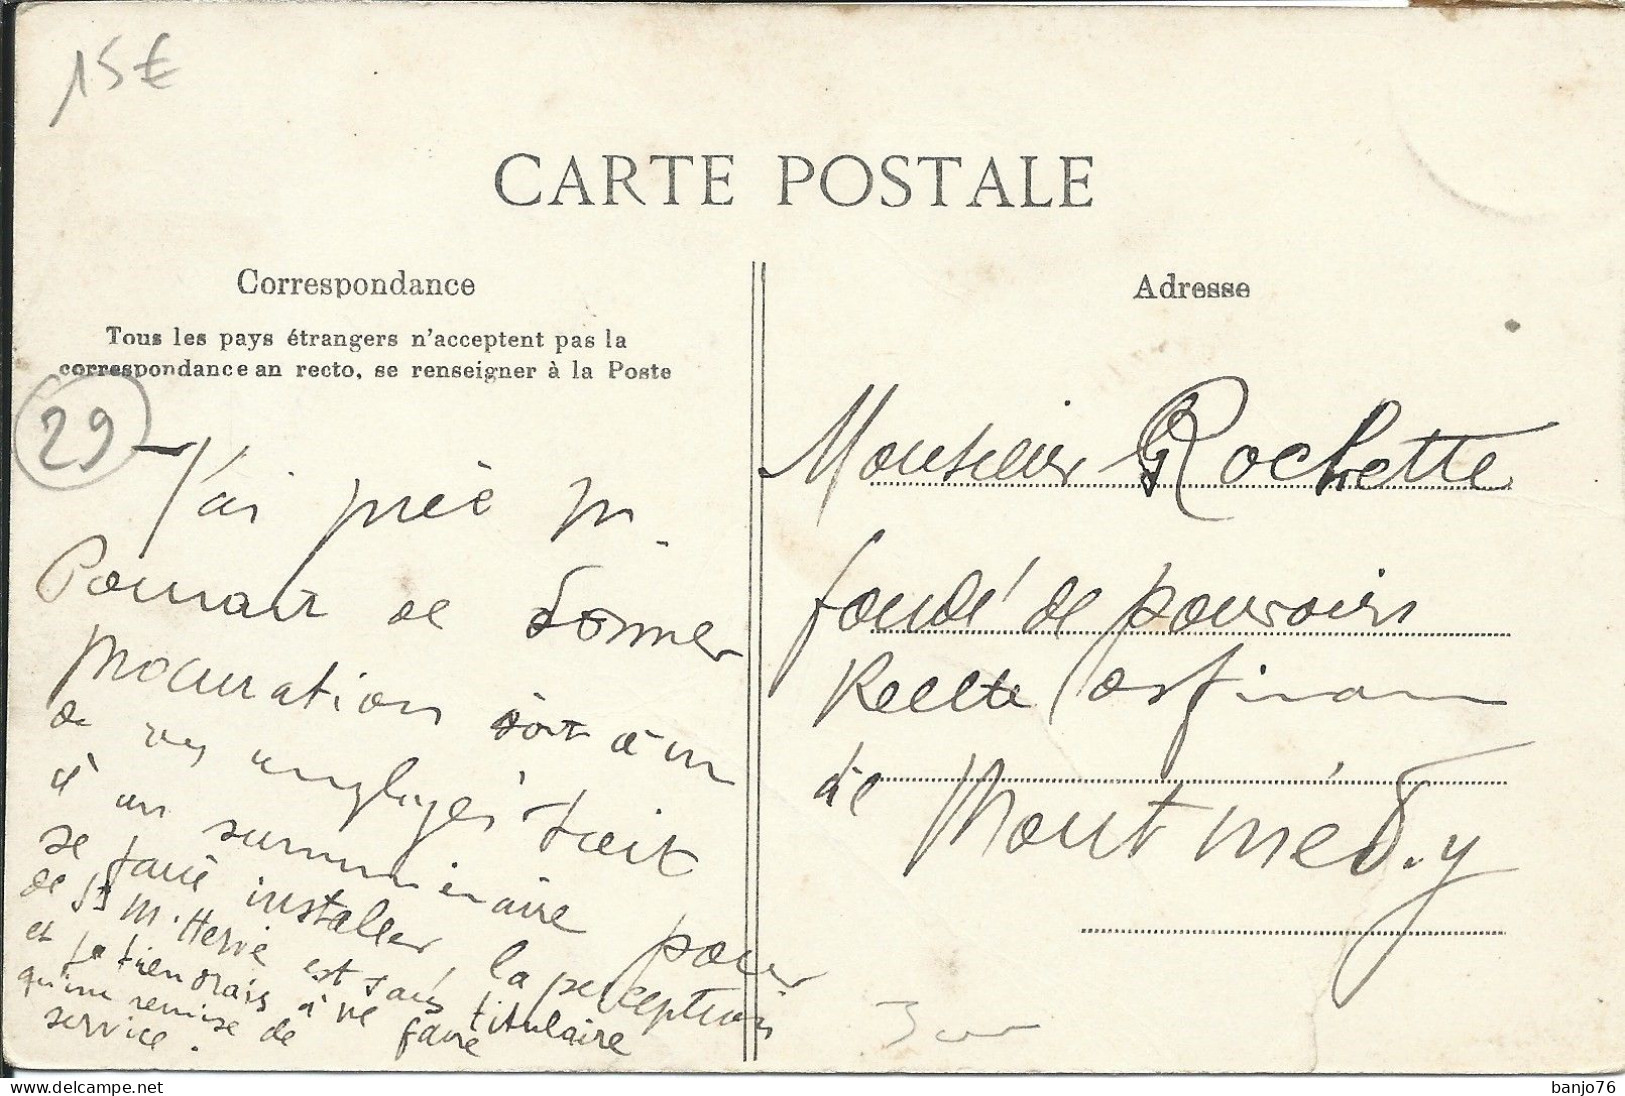 15€
CARTE POSTALE
Correspondance
Tous les pays étrangers n'acceptent pas la
correspondance an recto, se renseigner à la Poste
29
J'ai prié M.
de donner
procuration soit à un
de ses employés soit
à un surnuméraire pour
se faire installer, la perception
de St M. Hervé est sans titulaire
et je tiendrais à ne faire
qu'une remise de
service.
Adresse
Monsieur Rochette
fondé de pouvoirs
Recette des finances
de
Montmédy
delcampe.net
banjo76